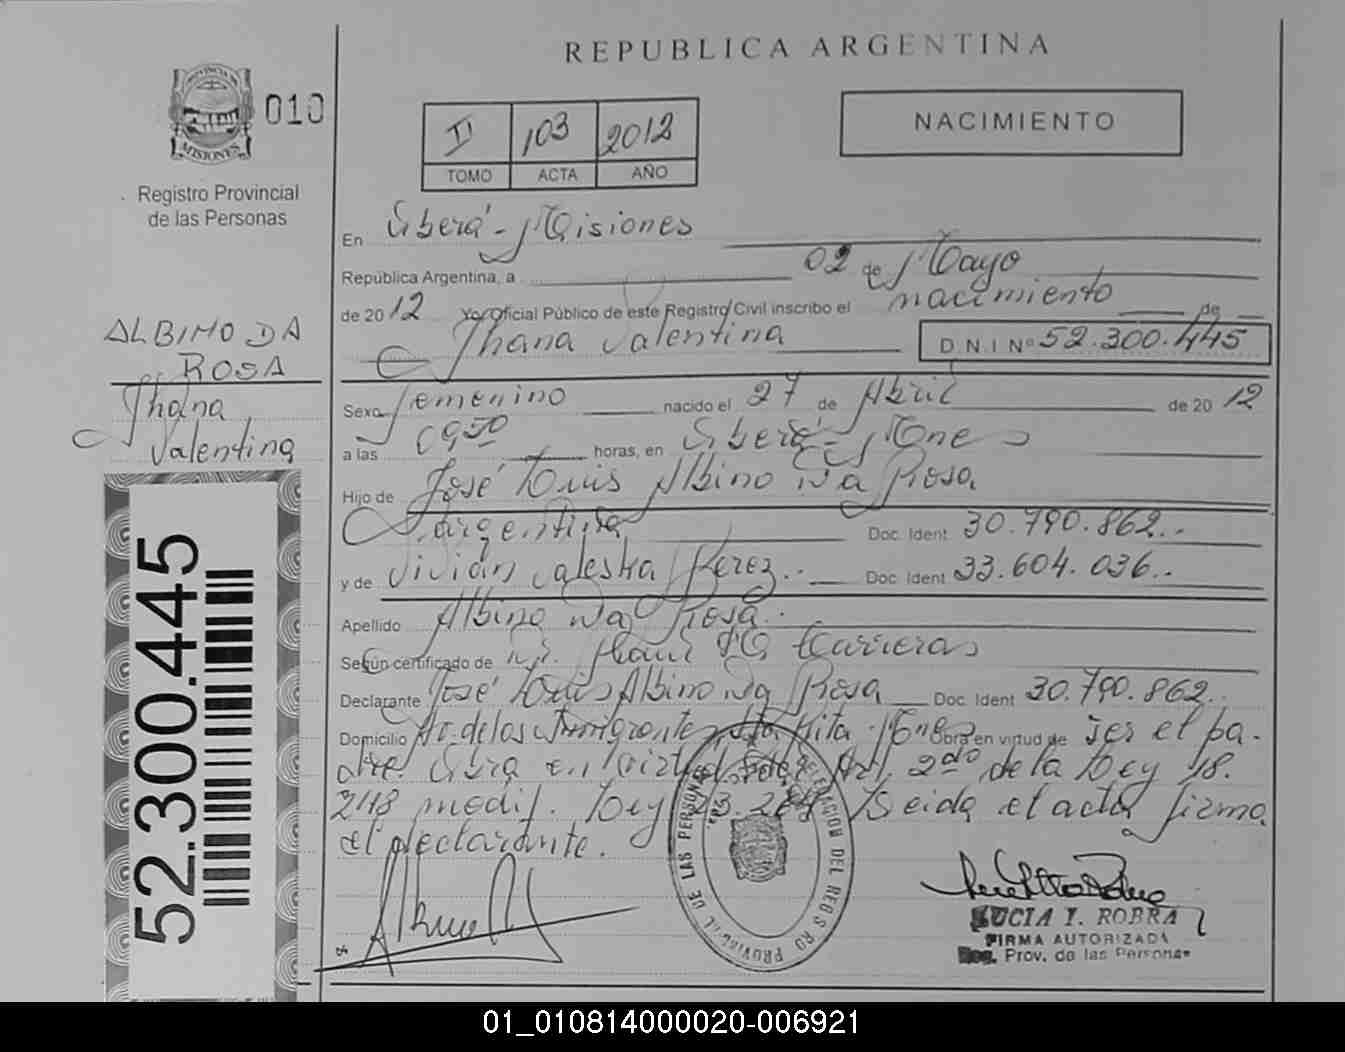 REPUBLICA ARGENTINA
010
MISIONES
Registro Provincial
de las Personas
II 103 2012
TOMO ACTA AÑO
NACIMIENTO
En Oberá - Misiones
República Argentina, a 02 de Mayo
de 2012 Yo Oficial Público de este Registro Civil inscribo el nacimiento de
Jhana Valentina D.N.I Nº 52.300.445
ALBINO DA
ROSA
Jhana
Valentina
Sexo Femenino nacido el 27 de Abril de 2012
a las 0930 horas, en Oberá - Mnes
Hijo de José Luis Albino Da Rosa
Argentina Doc. Ident 30.790.862..
y de Vivian Valeska Perez.. Doc. Ident 33.604.036..
Apellido Albino Da Rosa.
Según certificado de Dr. Raul Carreras
Declarante José Luis Albino Da Rosa Doc. Ident 30.790.862..
Domicilio Av. de las Inmigrantes, Sta Rita - Mnes Obra en virtud de ser el pa-
dre. Obra en virtud del Art. 2do de la Ley 18.
248 modif. Ley 23.264 Leida el acta firma
el declarante.
52.300.445
DELEGACION DEL REGISTRO PROVINCIAL DE LAS PERSONAS
LUCIA I. ROBRA
FIRMA AUTORIZADA
Reg. Prov. de las Personas
01_010814000020-006921